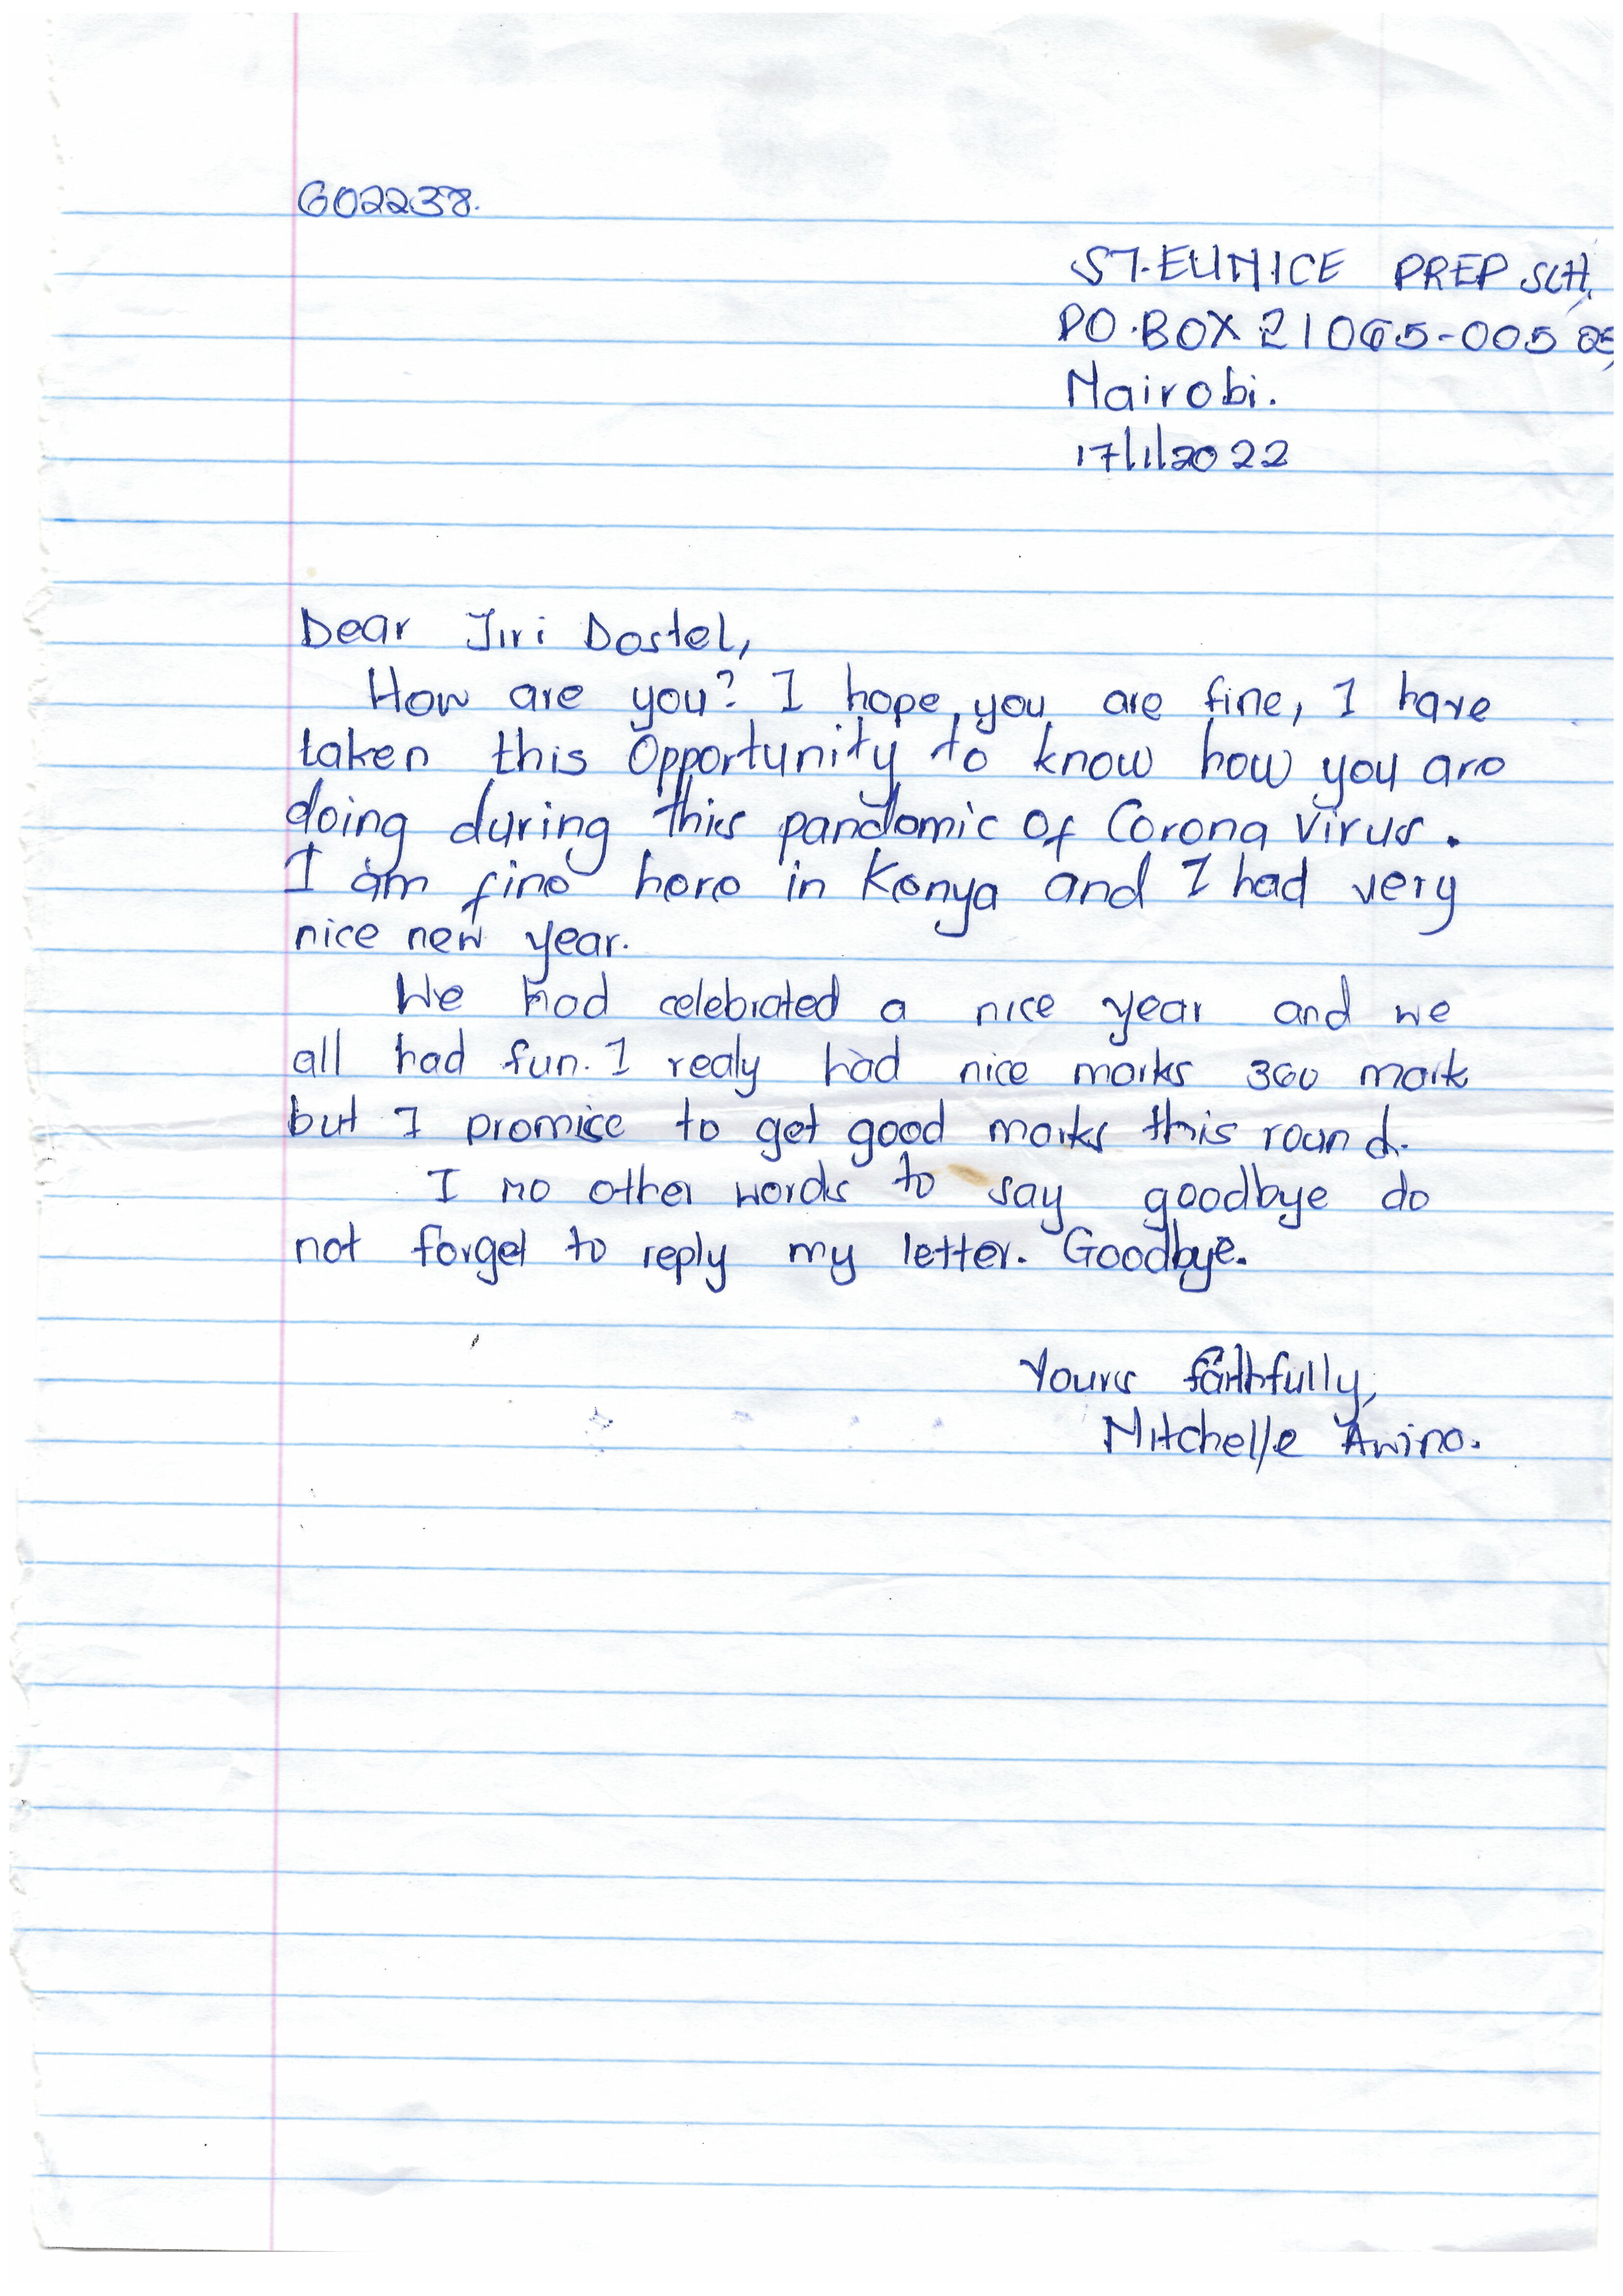 G02238.
ST. EUNICE PREP SCH.
PO. BOX 21065-005
Nairobi.
17/1/2022
Dear Jiri Dostel,
How are you? I hope, you are fine, I have
taken this Opportunity to know how you are
doing during this pandemic of Corona Virus.
I am fine here in Kenya and I had very
nice new year.
We had celebrated a nice year and we
all had fun. I realy had nice marks 360 mark
but I promise to get good marks this round.
I no other words to say goodbye do
not forget to reply my letter. Goodbye.
Yours faithfully,
Mitchelle Awino.